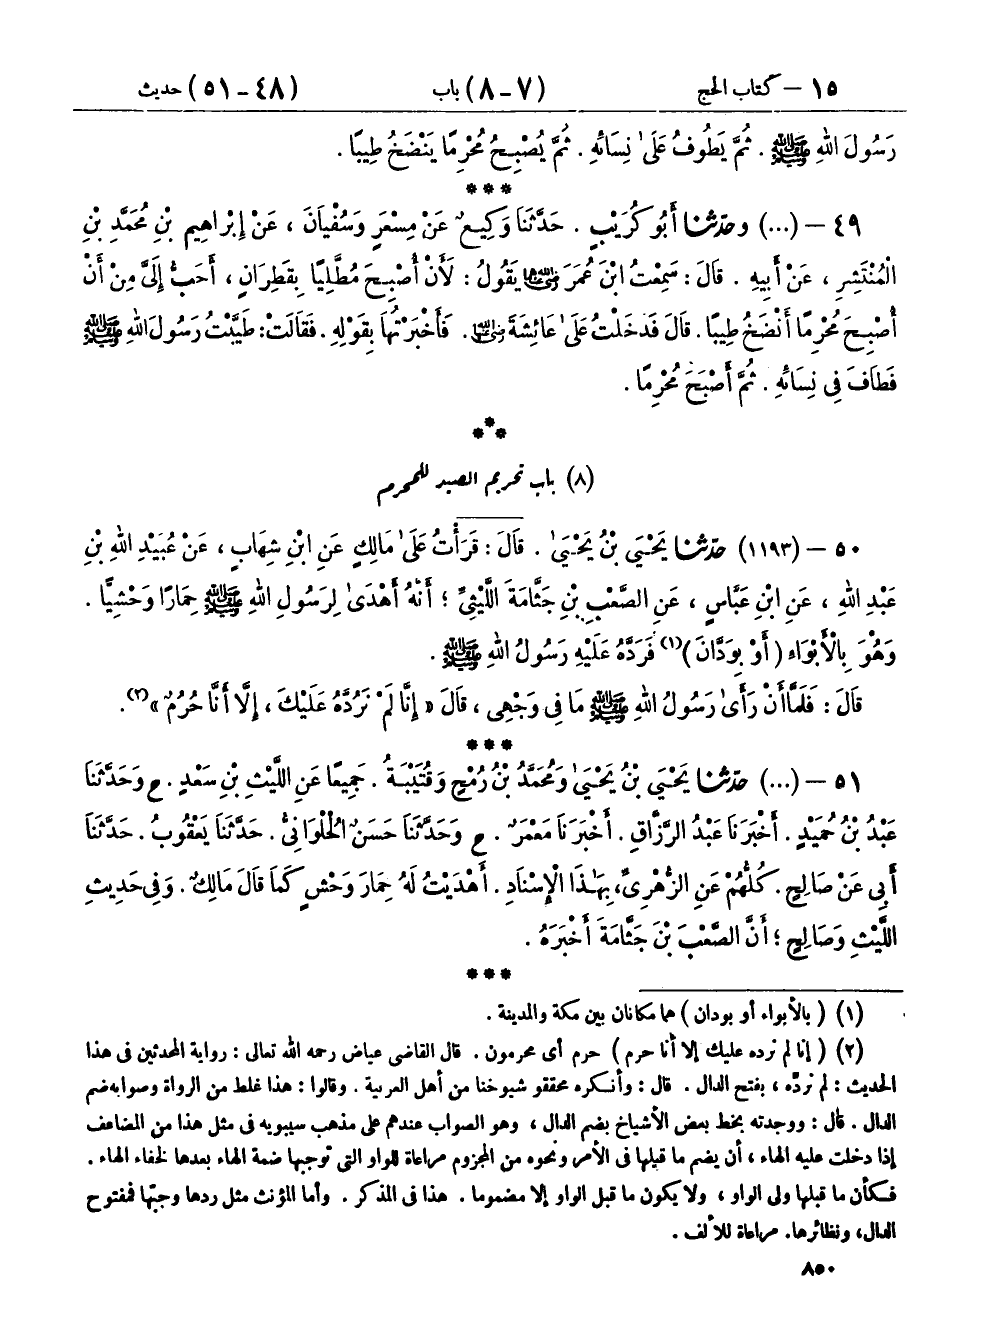 ١٥ – كتاب الحج (٧ – ٨) باب (٤٨ – ٥١) حديث
رَسُولَ اللهِ ﷺ . ثُمَّ يَطُوفُ عَلَىٰ نِسَائِهِ . ثُمَّ يُصْبِحُ مُحْرِمًا يَنْضَخُ طِيبًا .
***
٤٩ – (...) وحدّثنا أَبُو كُرَيْبٍ . حَدَّثَنَا وَكِيعٌ عَنْ مِسْعَرٍ وَسُفْيَانَ ، عَنْ إِبْرَاهِيمَ بْنِ مُحَمَّدِ بْنِ
الْمُنْتَشِرِ ، عَنْ أَبِيهِ . قَالَ : سَمِعْتُ ابْنَ عُمَرَ رضي الله عنهما يَقُولُ : لَأَنْ أُصْبِحَ مُطَّلِيًا بِقَطِرَانٍ ، أَحَبُّ إِلَىَّ مِنْ أَنْ
أُصْبِحَ مُحْرِمًا أَنْضَخُ طِيبًا . قَالَ فَدَخَلْتُ عَلَىٰ عَائِشَةَ رضي الله عنها . فَأَخْبَرْتُهَا بِقَوْلِهِ . فَقَالَتْ : طَيَّبْتُ رَسُولَ اللهِ ﷺ
فَطَافَ فِى نِسَائِهِ . ثُمَّ أَصْبَحَ مُحْرِمًا .
***
(٨) باب تحريم الصيد للمحرم
٥٠ – (١١٩٣) حدّثنا يَحْيَى بْنُ يَحْيَىٰ . قَالَ : قَرَأْتُ عَلَىٰ مَالِكٍ عَنِ ابْنِ شِهَابٍ ، عَنْ عُبَيْدِ اللهِ بْنِ
عَبْدِ اللهِ ، عَنِ ابْنِ عَبَّاسٍ ، عَنِ الصَّعْبِ بْنِ جَثَّامَةَ اللَّيْثِىِّ ؛ أَنَّهُ أَهْدَىٰ لِرَسُولِ اللهِ ﷺ حِمَارًا وَحْشِيًّا .
وَهُوَ بِالْأَبْوَاءِ ( أَوْ بِوَدَّانَ )(١) فَرَدَّهُ عَلَيْهِ رَسُولُ اللهِ ﷺ .
قَالَ : فَلَمَّا أَنْ رَأَىٰ رَسُولُ اللهِ ﷺ مَا فِى وَجْهِى ، قَالَ « إِنَّا لَمْ نَرُدَّهُ عَلَيْكَ ، إِلَّا أَنَّا حُرُمٌ »(٢).
***
٥١ – (...) حدّثنا يَحْيَى بْنُ يَحْيَىٰ وَمُحَمَّدُ بْنُ رُمْحٍ وَقُتَيْبَةُ . جَمِيعًا عَنِ اللَّيْثِ بْنِ سَعْدٍ . ح وَحَدَّثَنَا
عَبْدُ بْنُ حُمَيْدٍ . أَخْبَرَنَا عَبْدُ الرَّزَّاقِ . أَخْبَرَنَا مَعْمَرٌ . ح وَحَدَّثَنَا حَسَنٌ الْحُلْوَانِىُّ . حَدَّثَنَا يَعْقُوبُ . حَدَّثَنَا
أَبِى عَنْ صَالِحٍ . كُلُّهُمْ عَنِ الزُّهْرِىِّ، بِهَٰذَا الْإِسْنَادِ . أَهْدَيْتُ لَهُ حِمَارَ وَحْشٍ كَمَا قَالَ مَالِكٌ . وَفِى حَدِيثِ
اللَّيْثِ وَصَالِحٍ ؛ أَنَّ الصَّعْبَ بْنَ جَثَّامَةَ أَخْبَرَهُ .
***
(١) ( بالأبواء أو بودان ) هما مكانان بين مكة والمدينة .
(٢) ( إنا لم نرده عليك إلا أنا حرم ) حرم أى محرمون . قال القاضى عياض رحمه الله تعالى : رواية المحدثين فى هذا
الحديث : لم نردَّه ، بفتح الدال . قال : وأنكره محققو شيوخنا من أهل العربية . وقالوا : هذا غلط من الرواة وصوابه ضم
الدال . قال : ووجدته بخط بعض الأشياخ بضم الدال ، وهو الصواب عندهم على مذهب سيبويه فى مثل هذا من المضاعف
إذا دخلت عليه الهاء ، أن يضم ما قبلها فى الأمر ونحوه من المجزوم مراعاة للواو التى توجبها ضمة الهاء بعدها لخفاء الهاء .
فكأن ما قبلها ولى الواو ، ولا يكون ما قبل الواو إلا مضموما . هذا فى المذكر . وأما المؤنث مثل ردها وجبّها فمفتوح
الدال، ونظائرها. مراعاة للألف .
٨٥٠